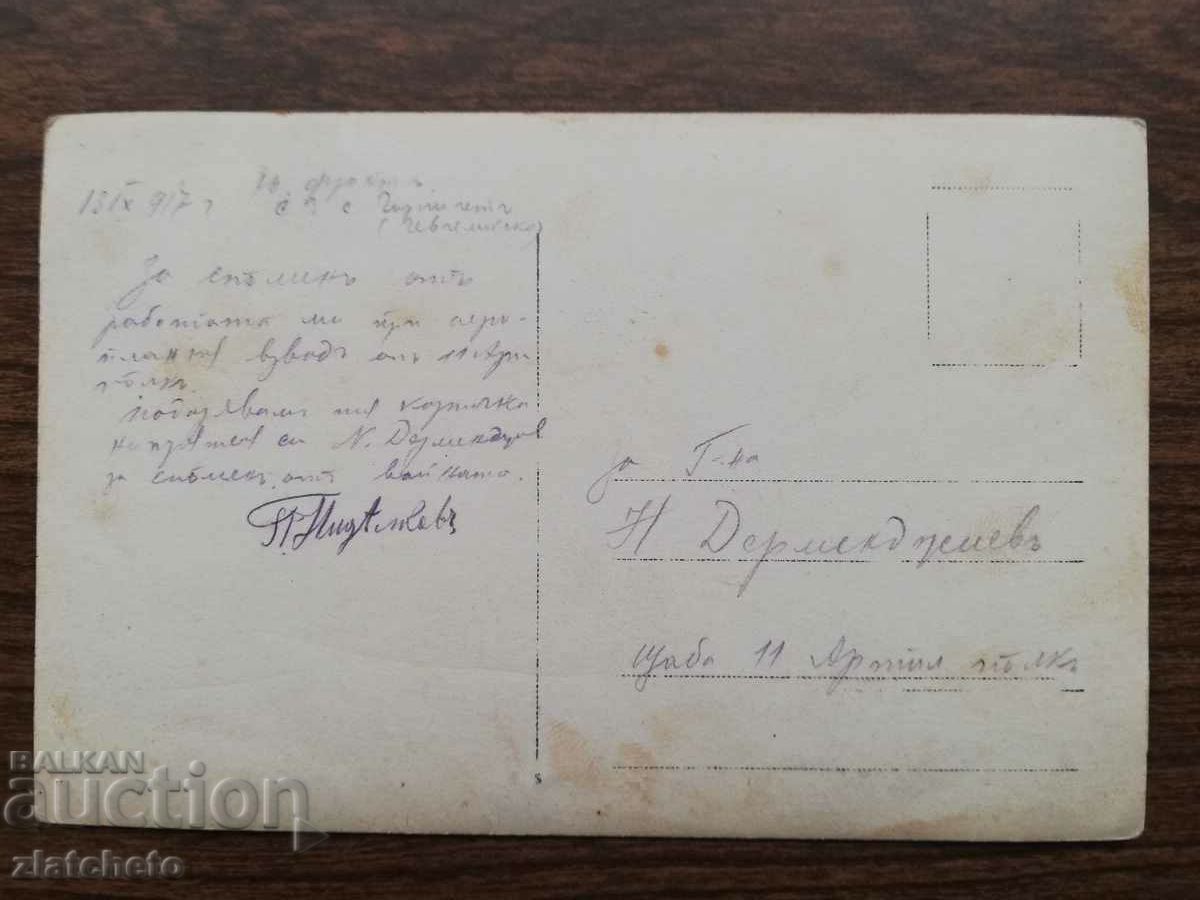 13 IX 917 г
фронтъ
с
(Гевгелийско)
За споменъ отъ
работата ми при аеро-
планния взводъ отъ 11 Арт
полкъ.
подарявамъ тая картичка
на приятеля си N. Дермендж
за споменъ отъ войната.
за Г-на
Н Дерменджиевъ
Щаба 11 Артил полкъ
s
BALKAN
auction
zlatcheto